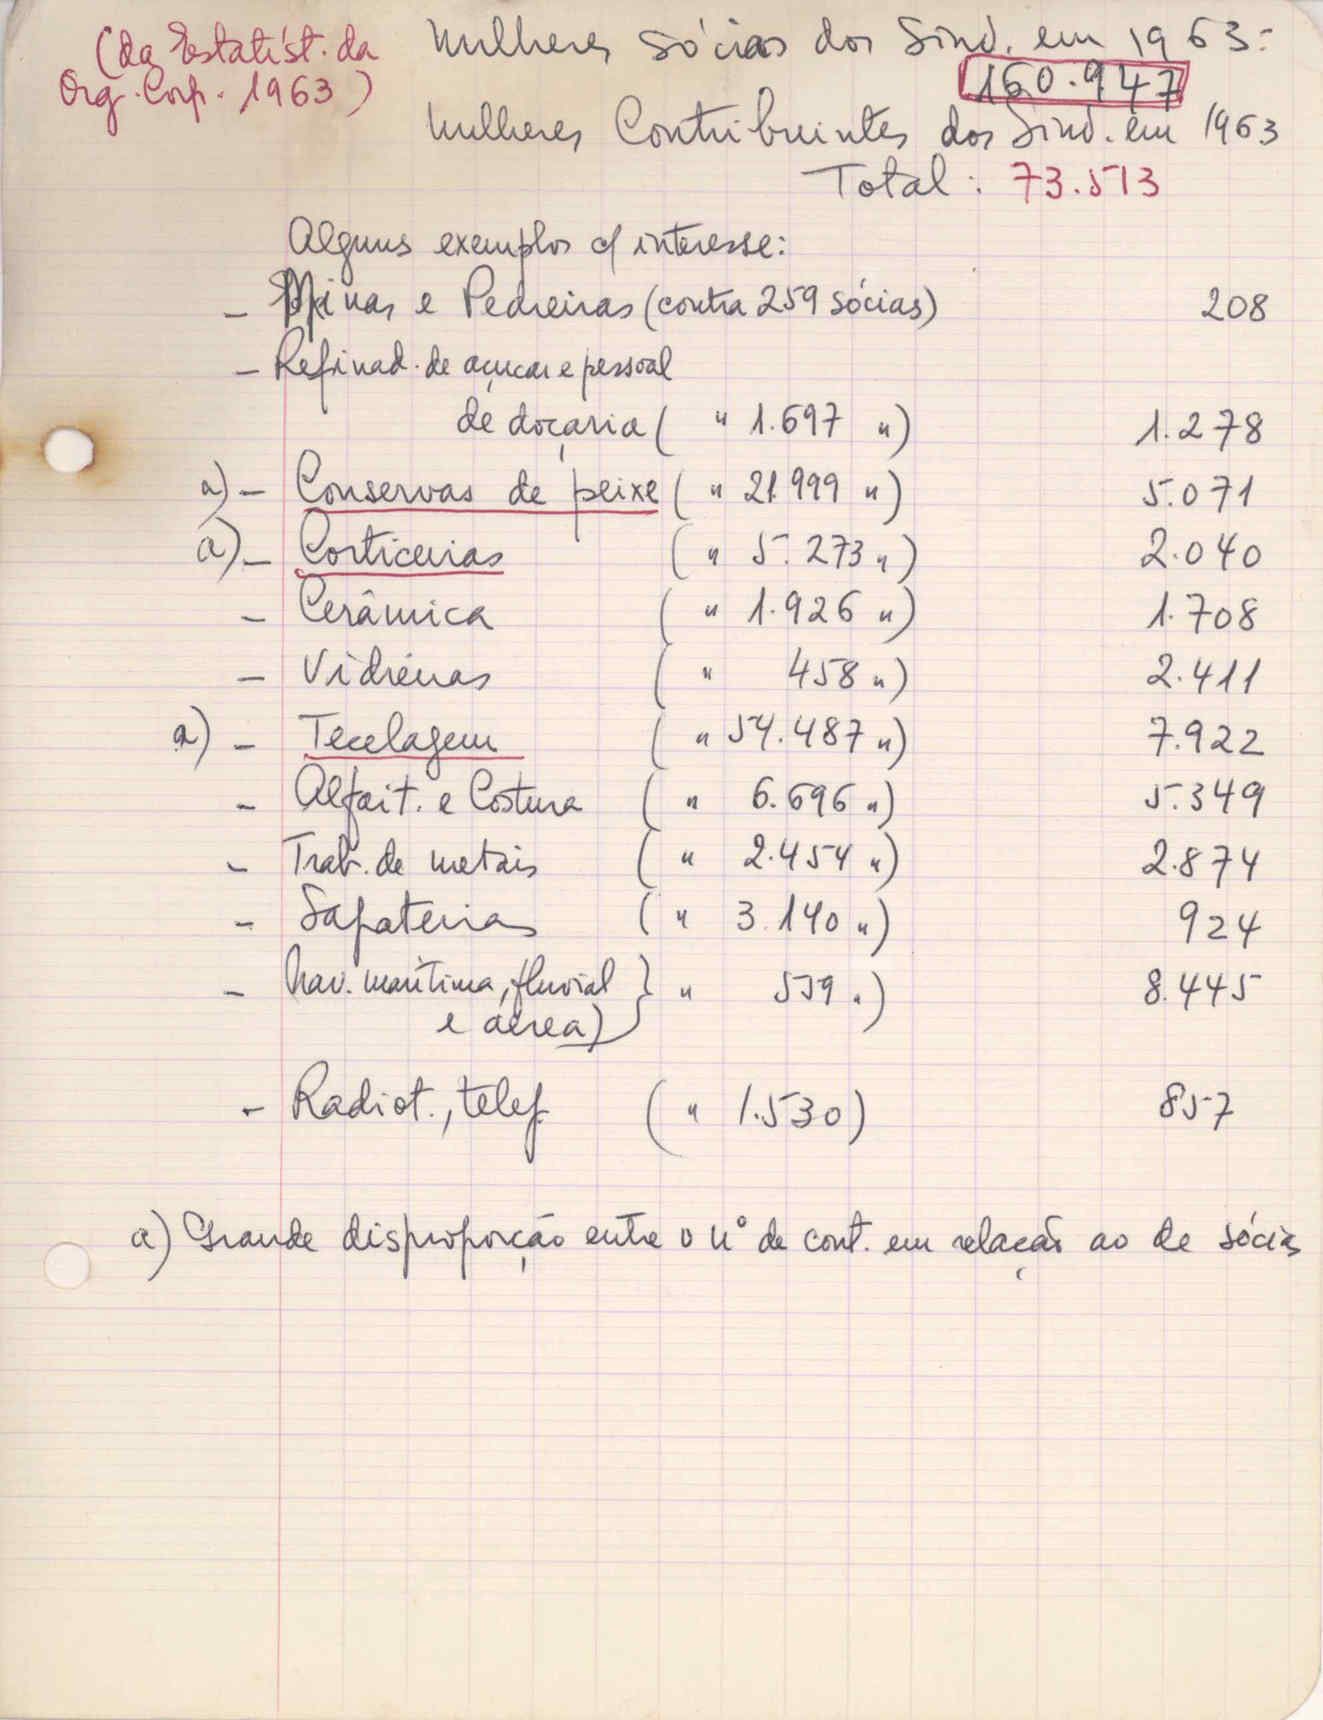 (da Estatíst. da
Org. Corp. 1963)
Mulheres sócias dos Sind. em 1963:
160.947
Mulheres Contribuintes dos Sind. em 1963
Total: 73.513
Alguns exemplos c/ interesse:
- Minas e Pedreiras (contra 259 sócias) 208
- Refinad. de açucar e pessoal
de doçaria ( " 1.697 " ) 1.278
a) - Conservas de peixe ( " 21.999 " ) 5.071
a) - Corticeiras ( " 5.273 " ) 2.040
- Cerâmica ( " 1.926 " ) 1.708
- Vidreiras ( " 458 " ) 2.411
a) - Tecelagem ( " 54.487 " ) 7.922
- Alfait. e Costura ( " 6.696 " ) 5.349
- Trab. de metais ( " 2.454 " ) 2.874
- Sapateiras ( " 3.140 " ) 924
- Nav. marítima, fluvial } " 539 " ) 8.445
e aérea)
- Radiot., telef. ( " 1.530) 857
a) Grande disproporção entre o nº de cont. em relação ao de sócias